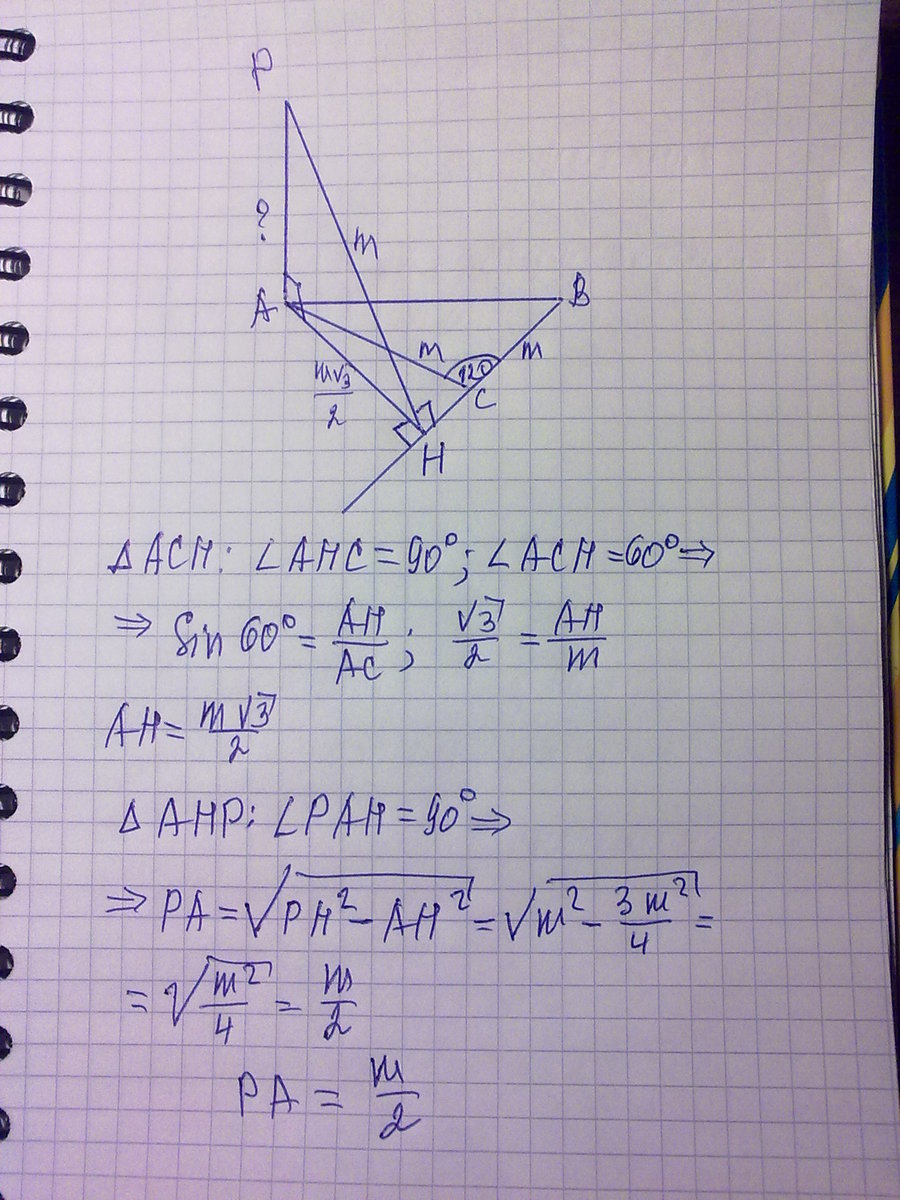 P
?
m
A
B
m
m
120
m√3/2
C
H
△ACH: ∠AHC = 90°; ∠ACH = 60° ⇒
⇒ Sin 60° = AH/AC; √3/2 = AH/m
AH = m√3/2
△AHP: ∠PAH = 90° ⇒
⇒ PA = √(PH² - AH²) = √(m² - 3m²/4) =
= √(m²/4) = m/2
PA = m/2